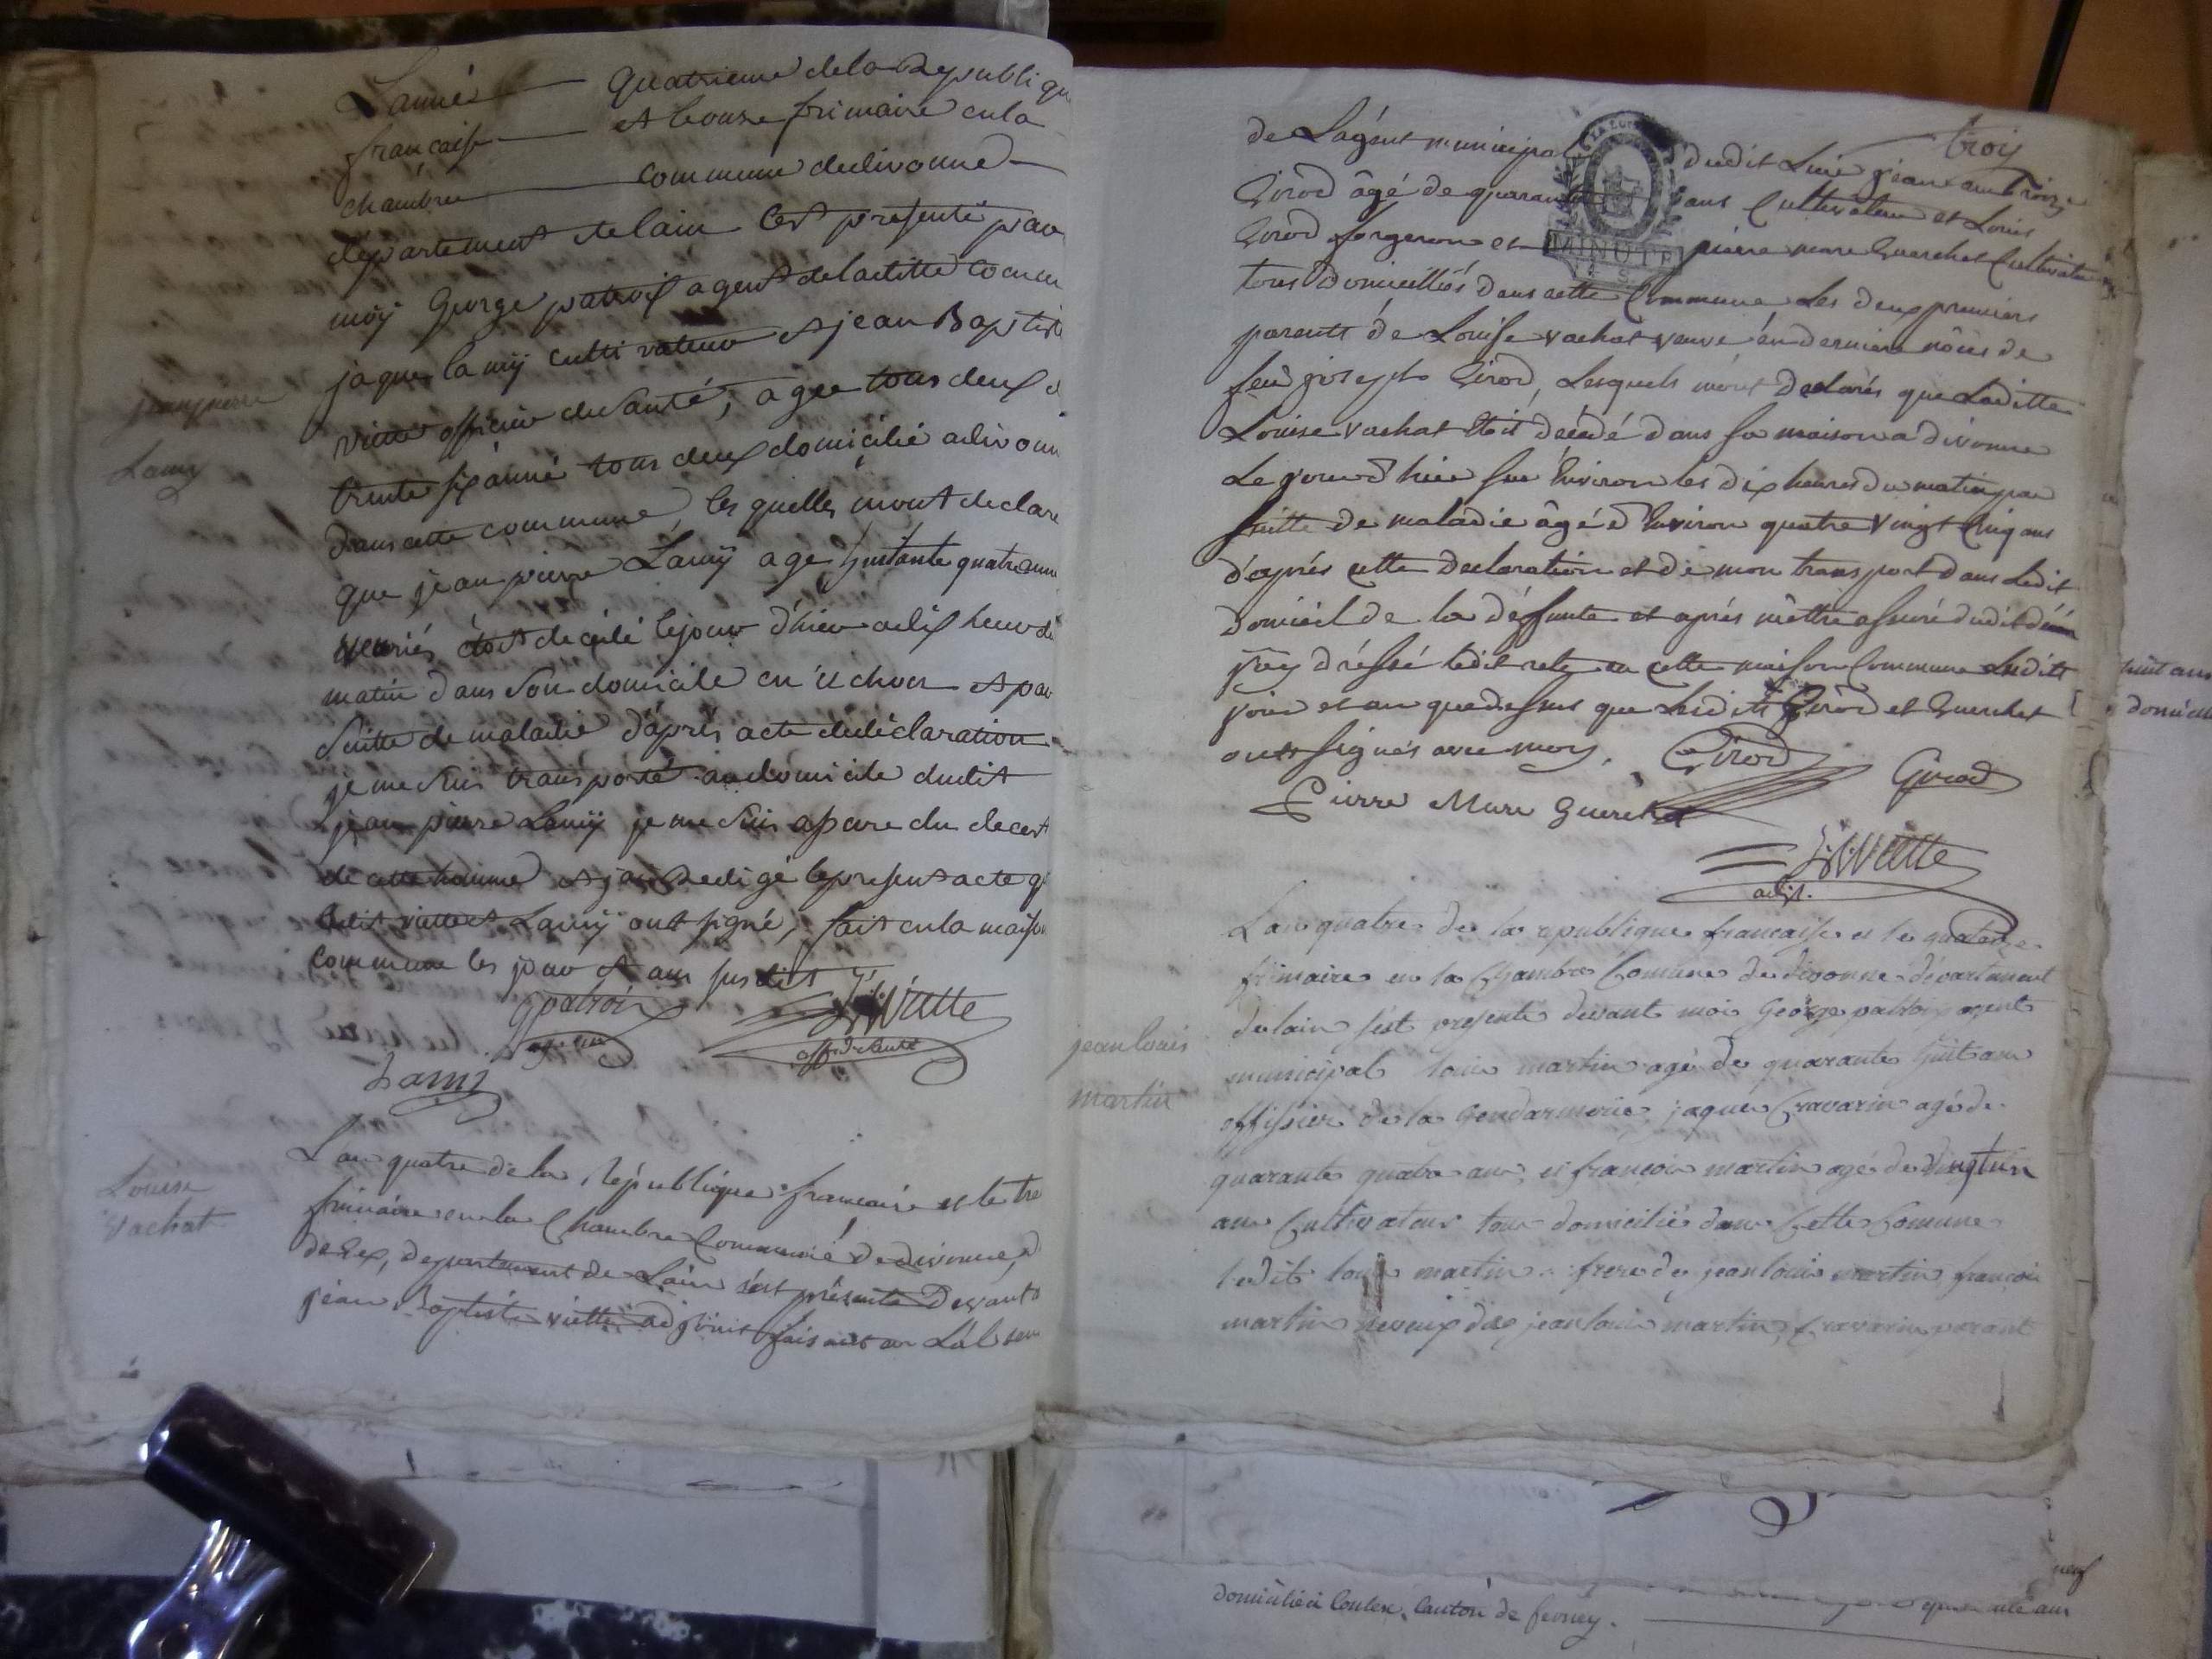 L'anné quatrieme de la Republiqu
francaise et le onze frimaire en la
chambre commune de divonne
departement de lain Cest presenté par
moÿ George patroix agent de laditte comm
jaque lamÿ cultivateur et jean Baptist
viette officier de Santé, agee tous deux d
trente six anné tous deux domicilié a divonn
dans cette commune, les quelles mont declare
que jean pierre Lamÿ age huitante quatre
etoit decedé le jour d'hier a dix heur du
matin dans Son domicile en et par
Suitte de maladie d'après acte de declaration
je me Suis transporté au domicile dudit
jean pierre Lamÿ je me Suis apare du decest
de cette homme et jai Redigé le present acte q
ledit viette et Lamÿ ont signé, fait en la maison
commune les jour et ans sus dits
Gpatroix
J.B. Viette
ag. mu
off. de Santé
Lami
jean pierre
Lamy
Louise
Vachat
Lan quatre de la République francaise et le tre
frimaire en la Chambre Commune de divonne, d
de Gex, departement de Lain s'est présenté Devant
jean Baptiste viette adjoint faisant en L'absen
troix
de Lagent municipal dudit Lieu jean ambroize
Girod âgé de quarante ans Cultivateur et Louis
Girod forgeron et pierre marc Guerchet Cultivateur
tous Domicilliés dans cette Commune, Les deux premiers
parents de Louise vachat veuve en derniere nôces de
feu joseph Girod, Lesquels m'ont declarés que Laditte
Louise vachat etoit décédé dans sa maison a divonne
Le jour d'hier sur Environ les dix heures du matin par
suitte de maladie âgé d'Environ quatre vingt Cinq ans
d'après cette declaration et de mon transport dans Ledit
domicil de la deffunte et après m'être assuré dudit décés
j'ay dréssé ledit acte en cette maison Commune Lesdits
jour et an que dessus que Lesdits Girod et Guerchet
ont signés avec moy. Girod
Girod
Pierre Marc Guerchet
J.B. Viette
adjt.
jean louis
martin
Lan quatre de la republique francaise et le quatorze
frimaire en la Chambre Comune de divonne département
de lain sest presenté devant moi George patroix agent
municipal louis martin agé de quarante huit ans
offissier de la Gendarmerie jaques Cravarin agé de
quarante quatre ans et francois martin agé de vingtun
ans Cultivateur tous domicilié dans Cette Comune
ledit louis martin frere de jean louis martin francois
martin neveux de jean louis martin, Cravarin parant
huit ans
domicili
neuf
Domicilié a Conlex, Canton de ferney.
quarante ans
MINUTE